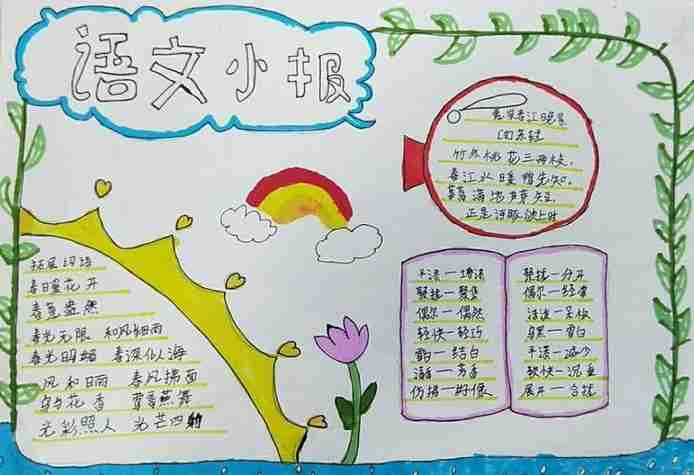 语文小报
惠崇春江晚景
[宋]苏轼
竹外桃花三两枝,
春江水暖鸭先知。
蒌蒿满地芦芽短,
正是河豚欲上时
拓展词语
春暖花开
春意盎然
春光无限 和风细雨
春光明媚 春深似海
风和日丽 春风拂面
鸟语花香 莺歌燕舞
光彩照人 光芒四射
平添—增添
聚拢—聚集
偶尔—偶然
轻快—轻巧
洁白
仿佛—好像
聚拢—分开
偶尔—经常
乌黑—雪白
平添—减少
轻快—沉重
展开—合拢